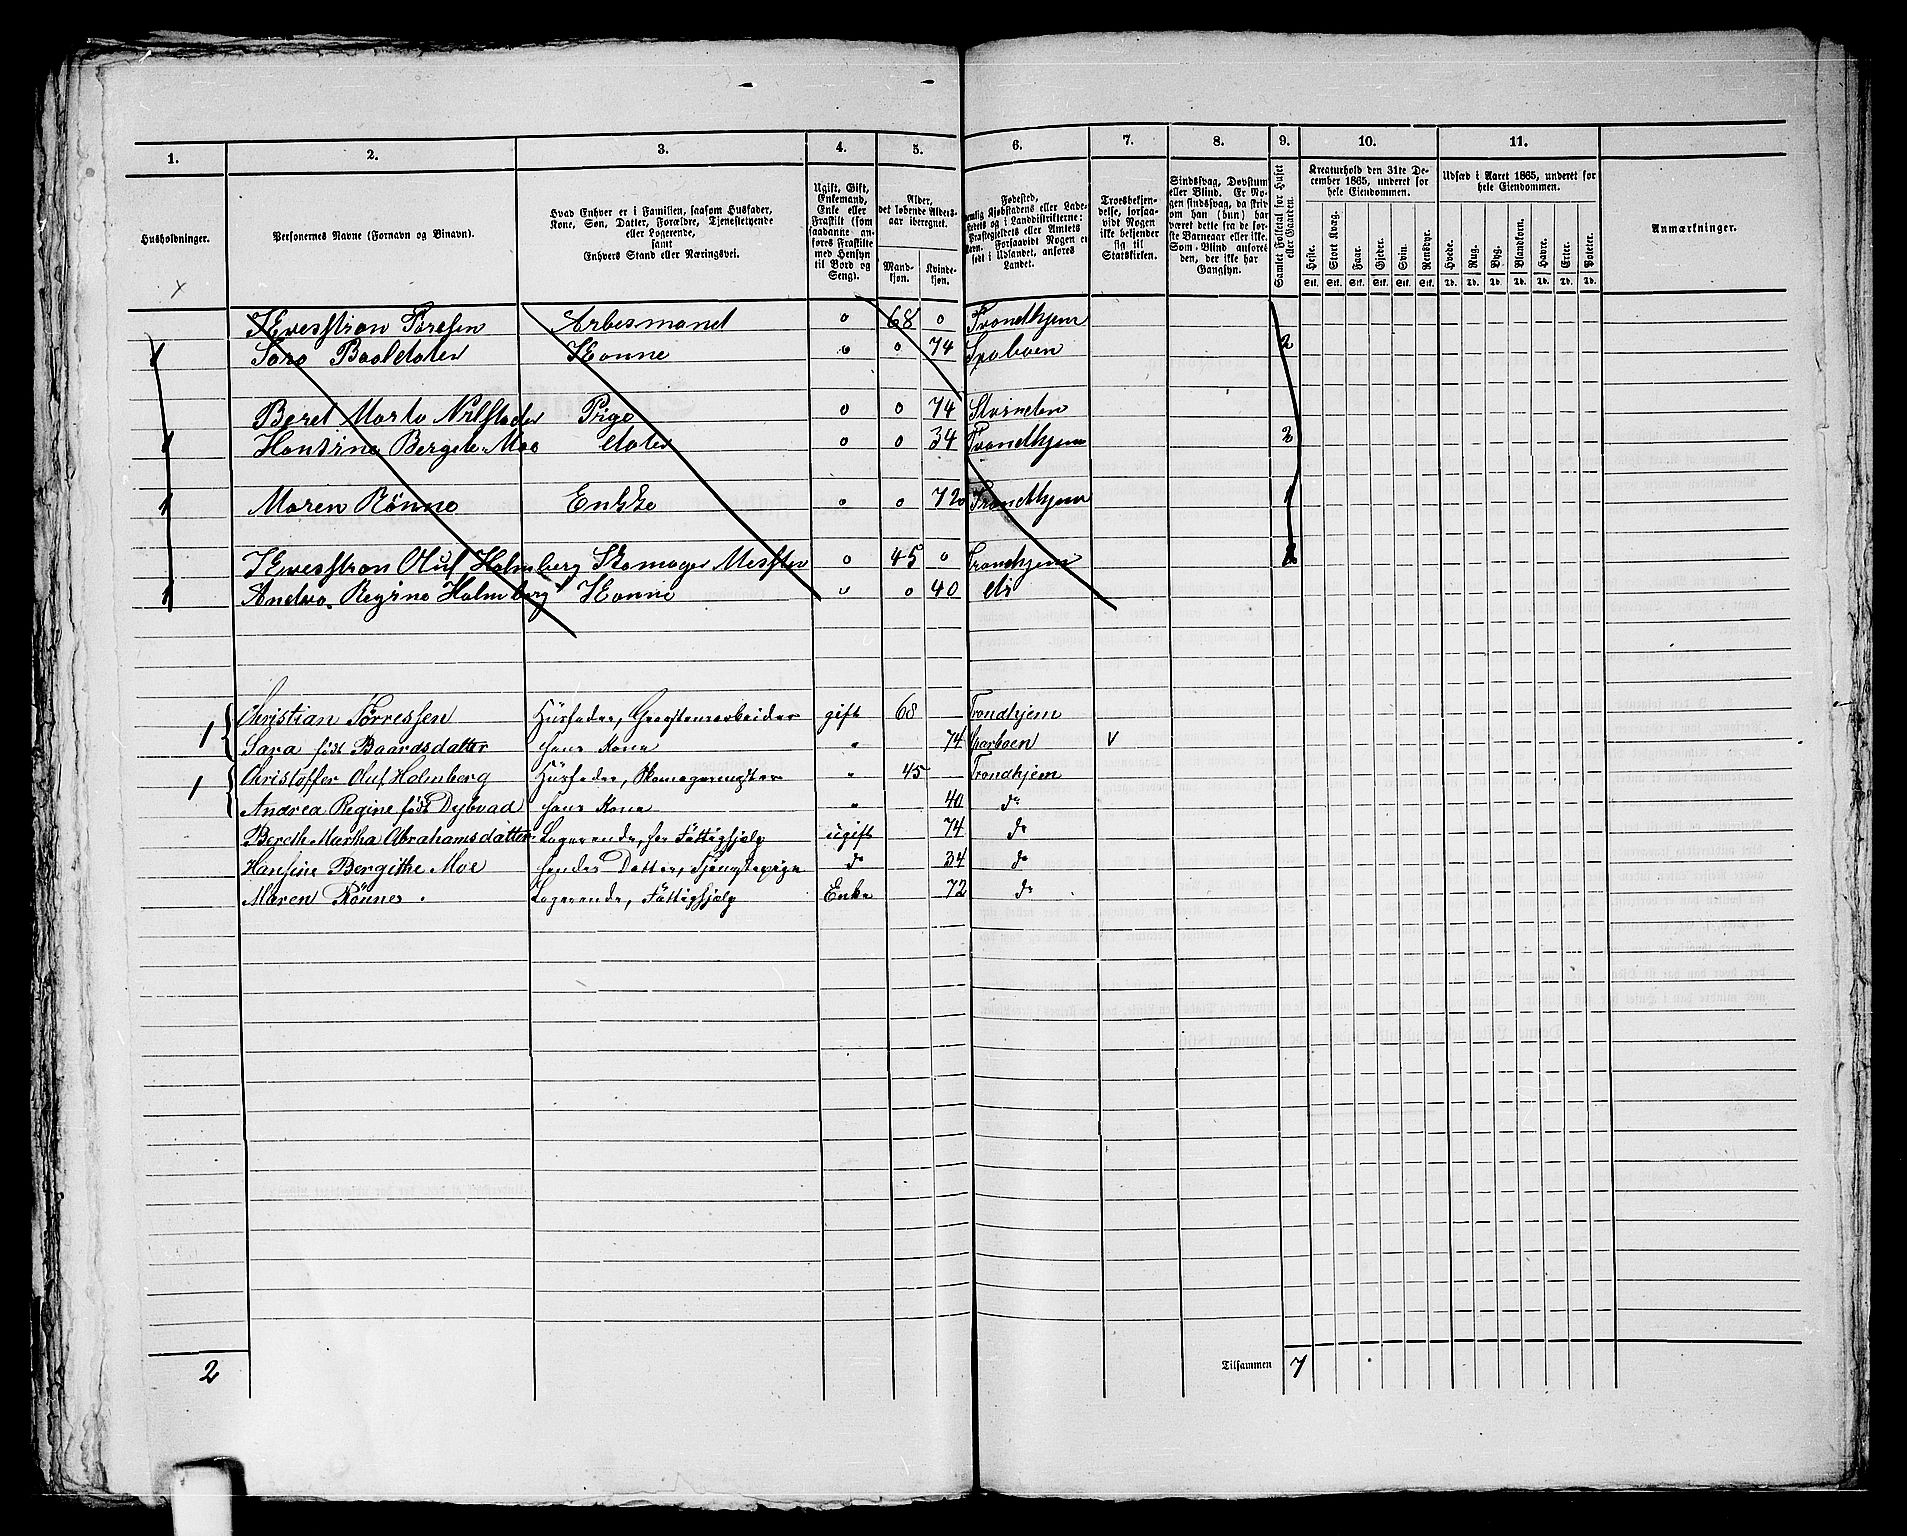 1. 2. 3. 4. 5. 6. 7. 8. 9. 10. 11.
Husholdninger.
Personernes Navne (Fornavn og Binavn).
Hvad Enhver er i Familien, saasom Husfader,
Kone, Søn, Datter, Forældre, Tjenestetyende
eller Logerende,
samt
Enhvers Stand eller Næringsvei.
Ugift, Gift,
Enkemand,
Enke eller
Fraskilt (som
saadanne an-
føres Fraskilte
med Hensyn
til Bord og
Seng).
Alder,
det løbende Alders-
aar iberegnet.
Mand-
kjøn.
Kvinde-
kjøn.
Fødested,
nemlig Kjøbstadens eller Lade-
stedets og i Landdistrikterne:
Præstegjeldets eller Amtets
Navn. Forsaavidt Nogen er
født i Udlandet, anføres
Landet.
Troesbekjen-
delse, forsaa-
vidt Nogen
ikke bekjender
sig til
Statskirken.
Sindssvag, Døvstum
eller Blind. Er No-
gen sindssvag, da skri-
ves om han (hun) har
været dette fra de før-
ste Barneaar eller ikke.
Som Blind anføres
den, der ikke har
Gangsyn.
Samlet Folketal for Huset
eller Gaarden.
Kreaturhold den 31te De-
cember 1865, underet for
hele Eiendommen.
Heste. Stort Kvæg. Faar. Gjeder. Svin. Rensdyr.
Stk. Stk. Stk. Stk. Stk. Stk.
Udsæd i Aaret 1865, underet for
hele Eiendommen.
Hvede. Rug. Byg. Blandkorn. Havre. Erter. Poteter.
Td. Td. Td. Td. Td. Td. Td.
Anmærkninger.
Toresen Arbesmand o 68 o Trondhjem
1 Sara Konne o o 74 2
Beret Marta Pige o o 74 Strinden
1 Hansine Moe dater o o 34 Trondhjem 2
1 Maren Rønne o o 72 Trondhjem 1
Oluf Holmberg Skomager Mester o 45 o Trondhjem
1 Andrea Regine Holmberg Konne o o 40 do 2
1 Christian Tørressen Husfader, gift 68 Trondhjem
Sara født Baardsdatter hans Kone " 74 Sparboen V
1 Christoffer Oluf Holmberg Husfader, Skomagermester " 45 Trondhjem
Andrea Regine født Dybvad hans Kone " 40 do
Bereth Martha Abrahamsdatter Logerende, Fattighjelp ugift 74 do
Hansine Bergithe Moe hendes Datter, Tjenestepige do 34 do
Maren Rønne Logerende, Fattighjelp Enke 72 do
2 Tilsammen 7